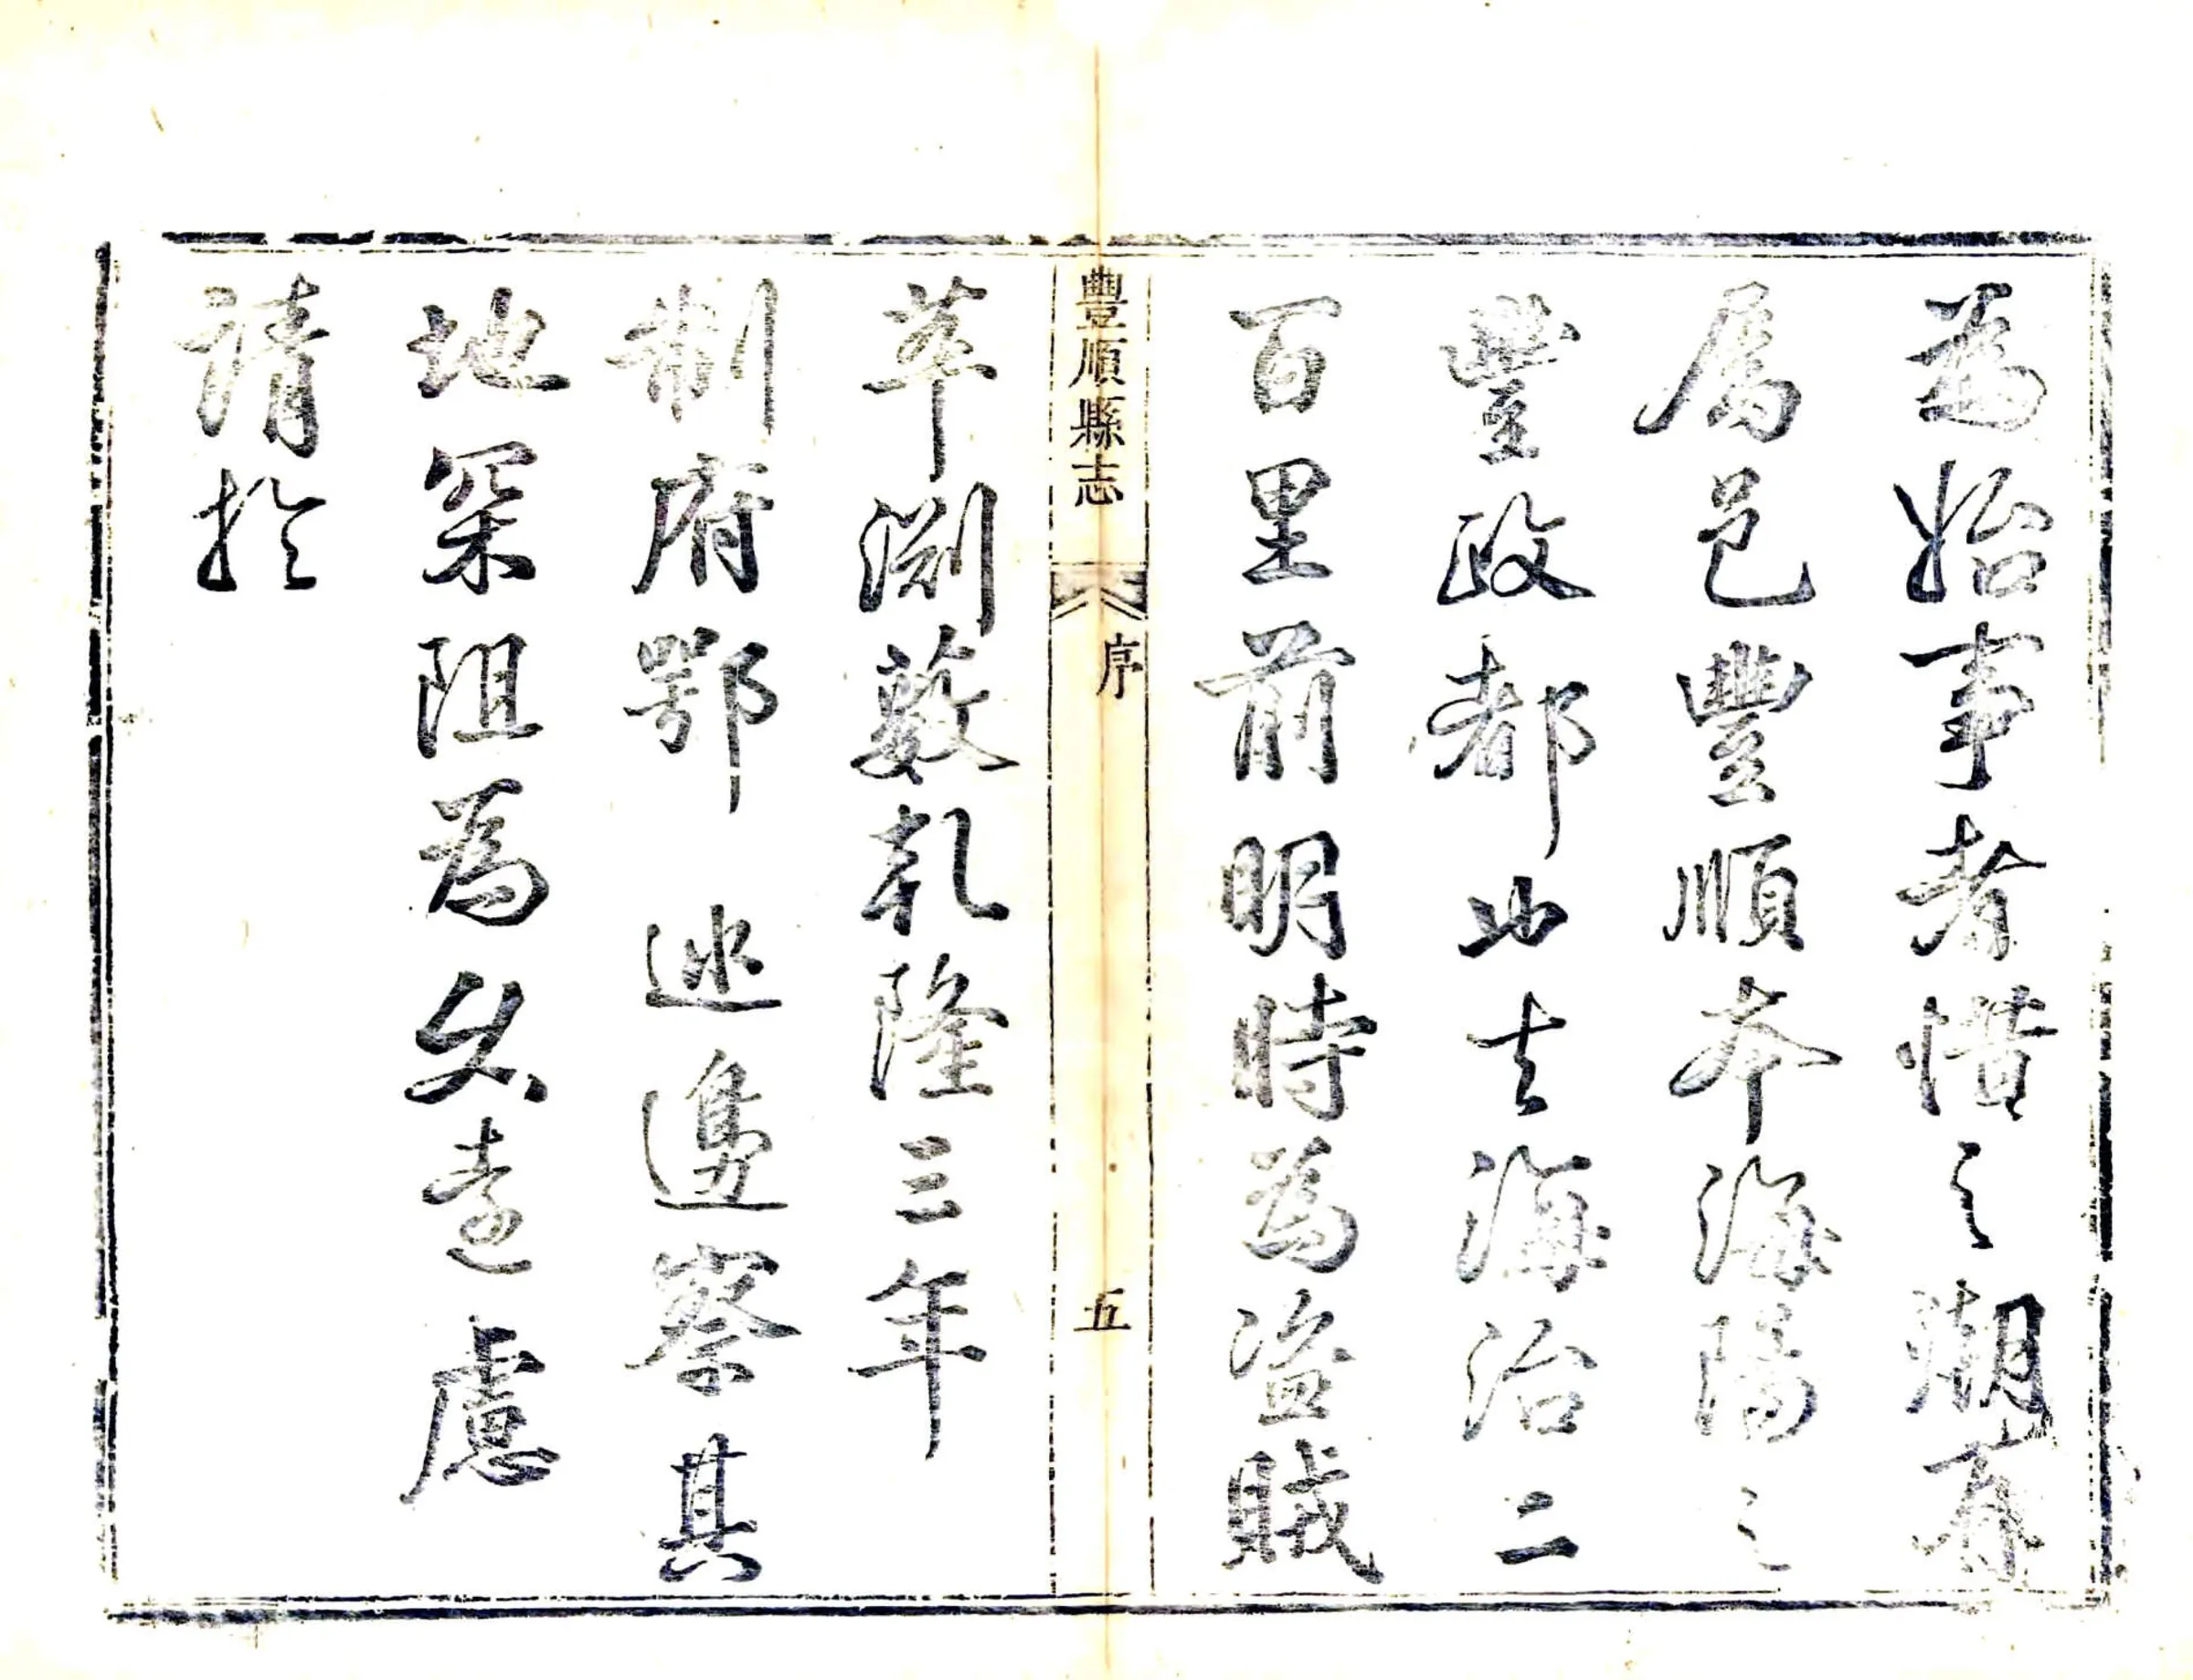 為始事者惜之潮有
屬邑豐順本海陽之
豐政都地去海治二
百里前明時為盜賊
豐順縣志 序 五
萃淵藪乾隆三年
制府鄂 巡邊察其
地罙阻為久遠慮
請於